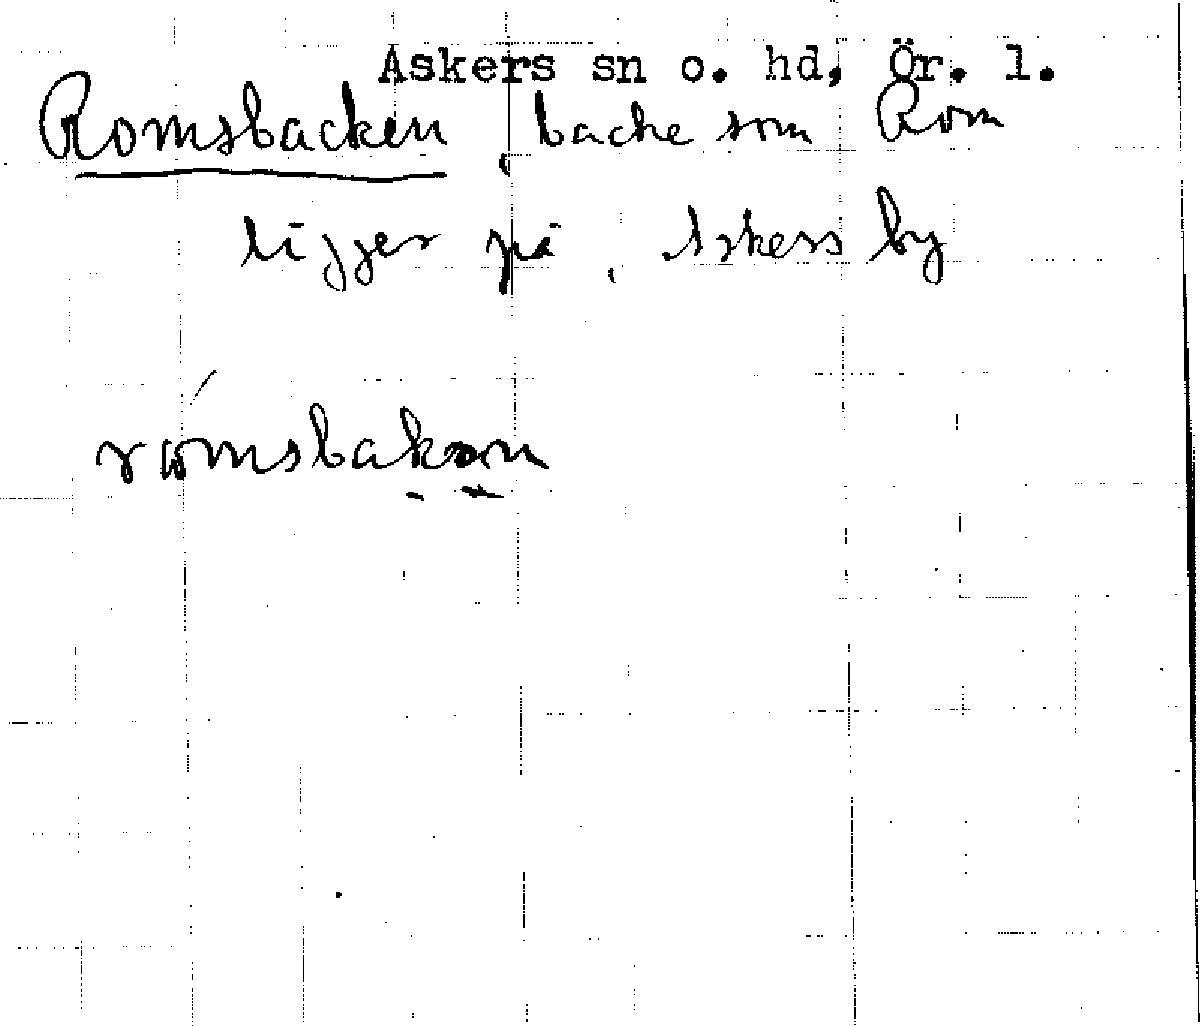 Askers sn o. hd, Ör. l.
Romsbacken, backe som Rom
ligger på, Askers by
romsbakan